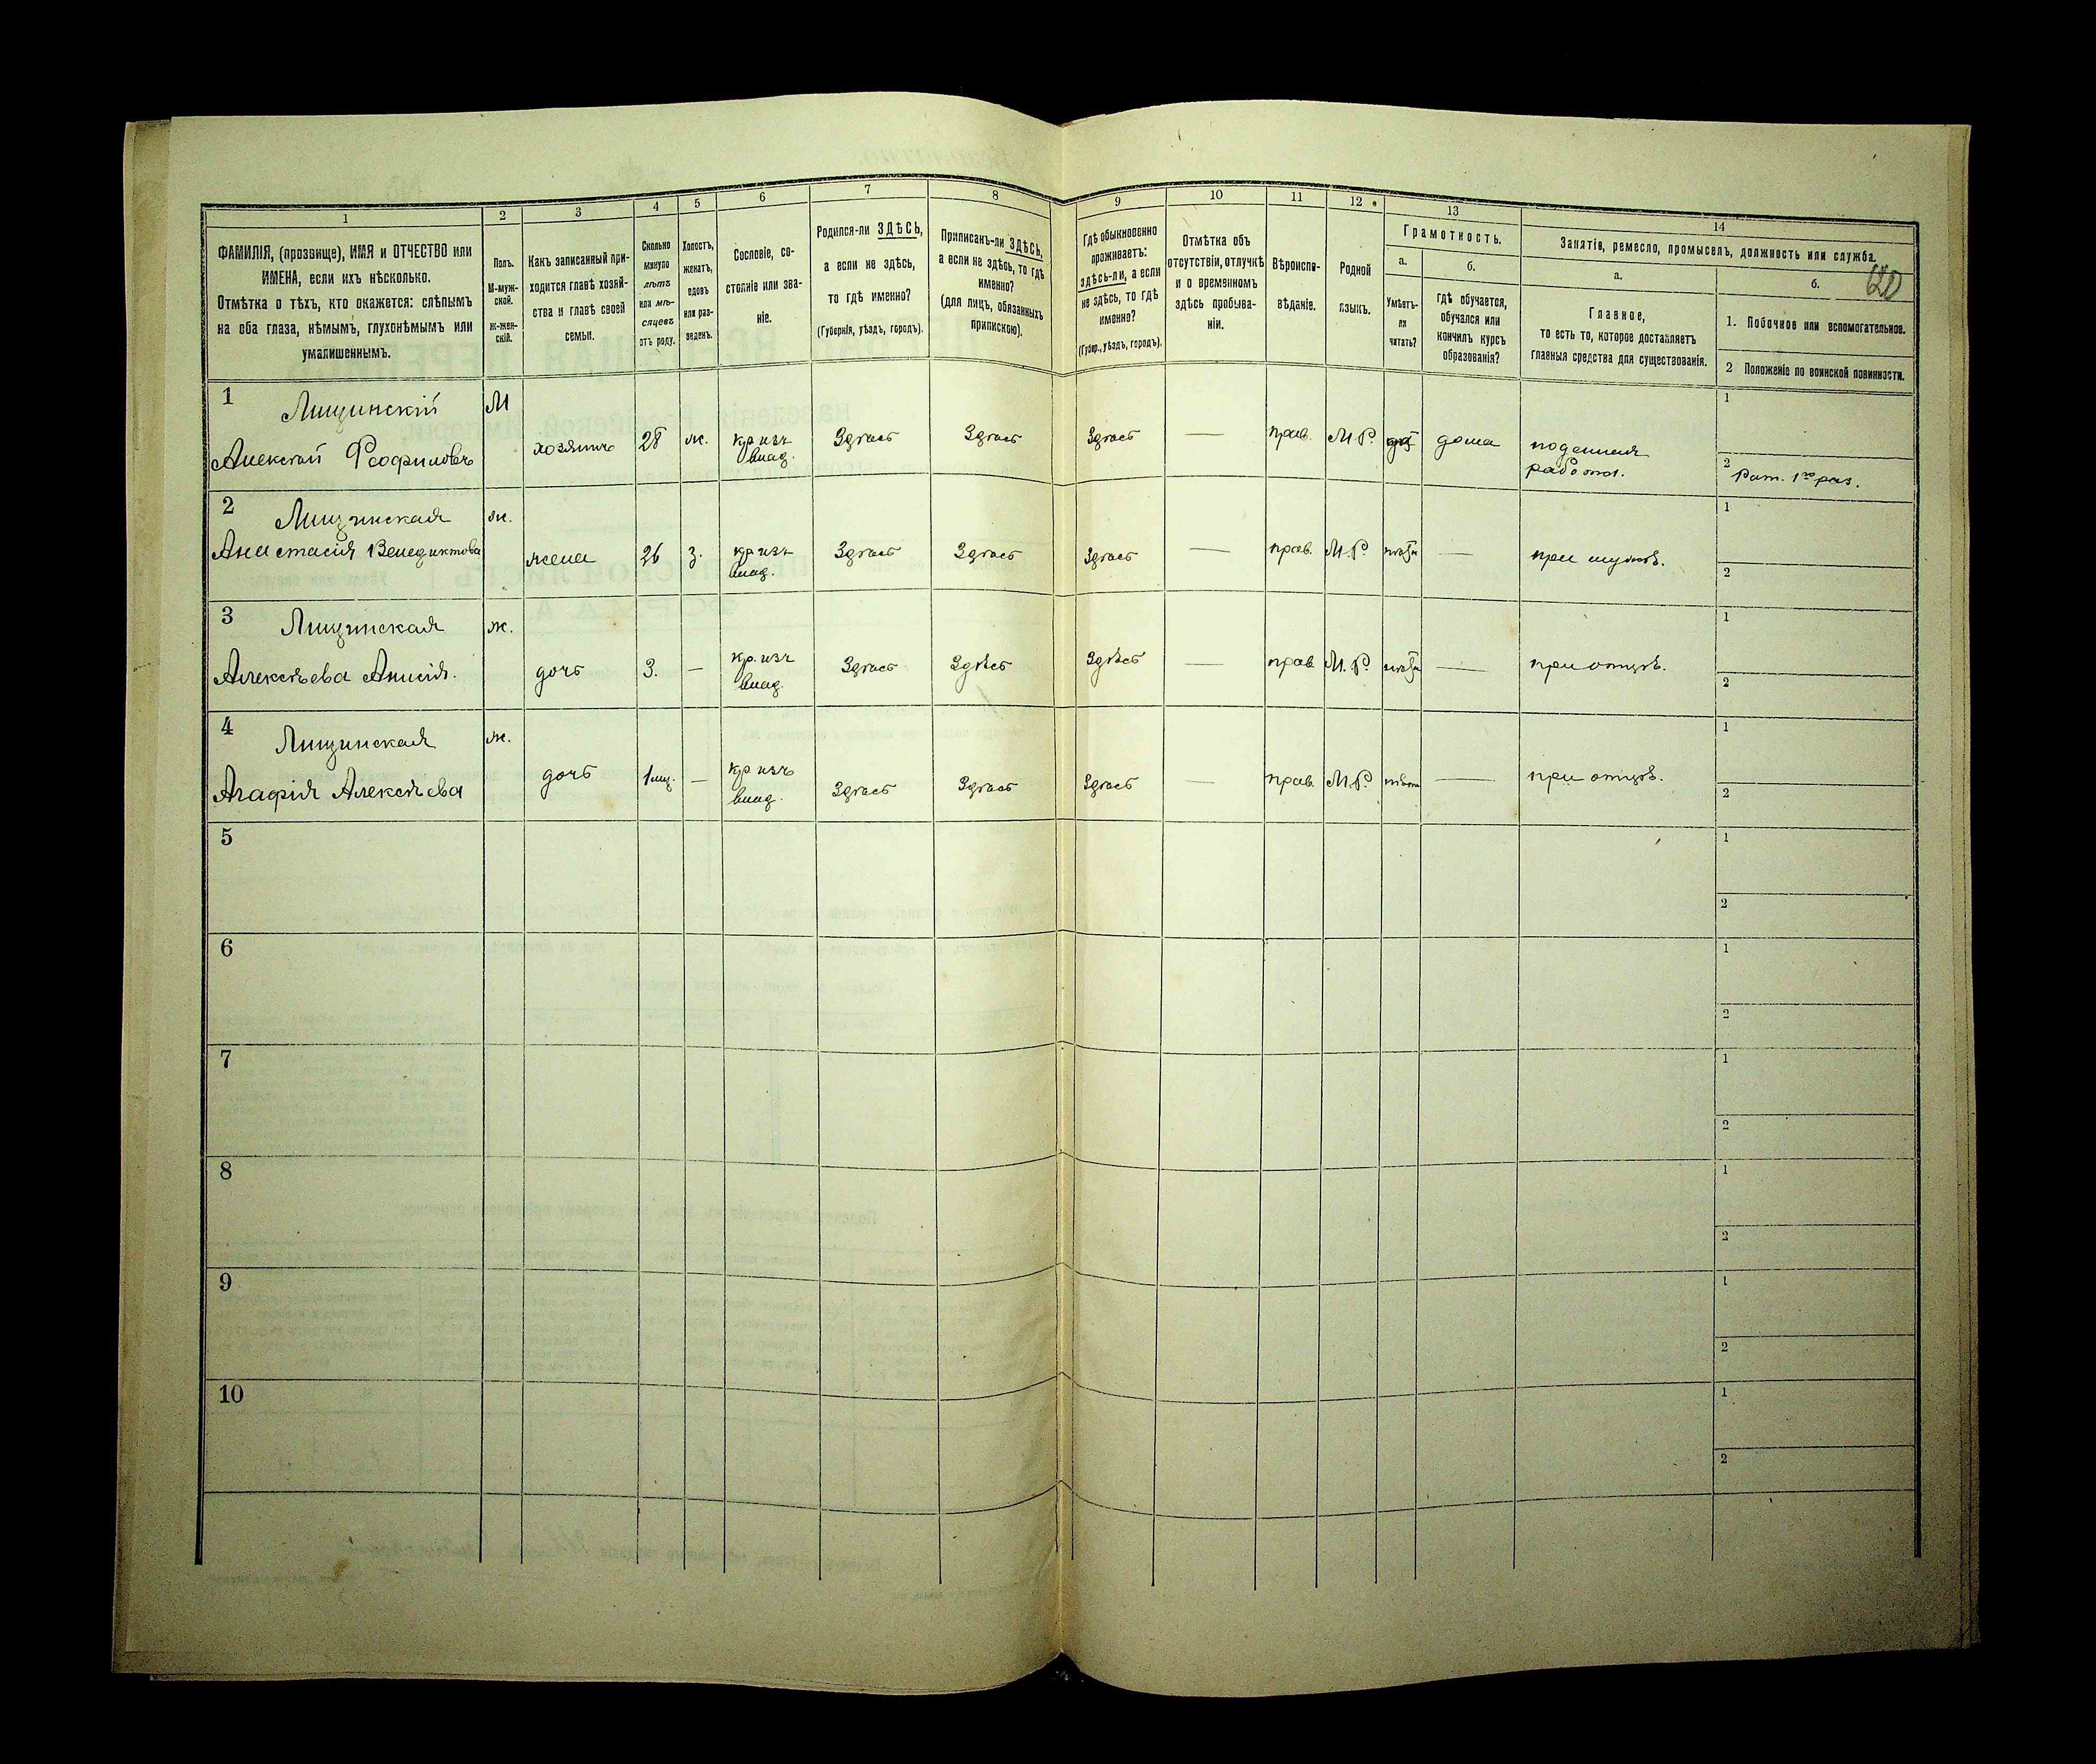 1 2 3 4 5 6 7 8 9 10 11 12 13 14
ФАМИЛІЯ, (прозвище), ИМЯ и ОТЧЕСТВО или
ИМЕНА, если ихъ нѣсколько.
Отмѣтка о тѣхъ, кто окажется: слѣпымъ
на оба глаза, нѣмымъ, глухонѣмымъ или
умалишеннымъ.
Полъ.
М-муж-
ской.
Ж-жен-
скій.
Какъ записанный при-
ходится главѣ хозяй-
ства и главѣ своей
семьи.
Сколько
минуло
лѣтъ
или мѣ-
сяцевъ
отъ роду.
Холостъ,
женатъ,
вдовъ
или раз-
веденъ.
Сословіе, со-
стояніе или зва-
ніе.
Родился-ли ЗДѢСЬ,
а если не здѣсь,
то гдѣ именно?
(Губернія, уѣздъ, городъ).
Приписанъ-ли ЗДѢСЬ,
а если не здѣсь, то гдѣ
именно?
(для лицъ, обязанныхъ
припискою).
Гдѣ обыкновенно
проживаетъ:
здѣсь-ли, а если
не здѣсь, то гдѣ
именно?
(Губер., уѣздъ, городъ).
Отмѣтка объ
отсутствіи, отлучкѣ
и о временномъ
здѣсь пребыва-
ніи.
Вѣроиспо-
вѣданіе.
Родной
языкъ.
Грамотность.
а.
Умѣетъ-
ли
читать?
б.
гдѣ обучается,
обучался или
кончилъ курсъ
образованія?
Занятіе, ремесло, промыселъ, должность или служба.
а.
Главное,
то есть то, которое доставляетъ
главныя средства для существованія.
б.
1. Побочное или вспомогательное.
2 Положеніе по воинской повинности.
1 Лищинскій М 1
Алексѣй Феофиловъ хозяинъ 28 ж. кр. изъ Здѣсь Здѣсь Здѣсь — прав. М.Р. да дома поденная
влад. работа. 2 Рат. 1го раз.
2 Лищинская ж. 1
Анастасія Венедиктова жена 26 з. кр. изъ Здѣсь Здѣсь Здѣсь — прав. М.Р. нѣтъ — при мужѣ.
влад. 2
3 Лищинская ж. 1
Алексѣева Анисія. дочь 3. — кр. изъ Здѣсь Здѣсь Здѣсь — прав М.Р. нѣтъ — при отцѣ.
влад. 2
4 Лищинская ж. 1
Агафія Алексѣева дочь 1 мц. — кр. изъ Здѣсь Здѣсь Здѣсь — прав. М.Р. нѣтъ — при отцѣ.
влад. 2
5 1
2
6 1
2
7 1
2
8 1
2
9 1
2
10 1
2